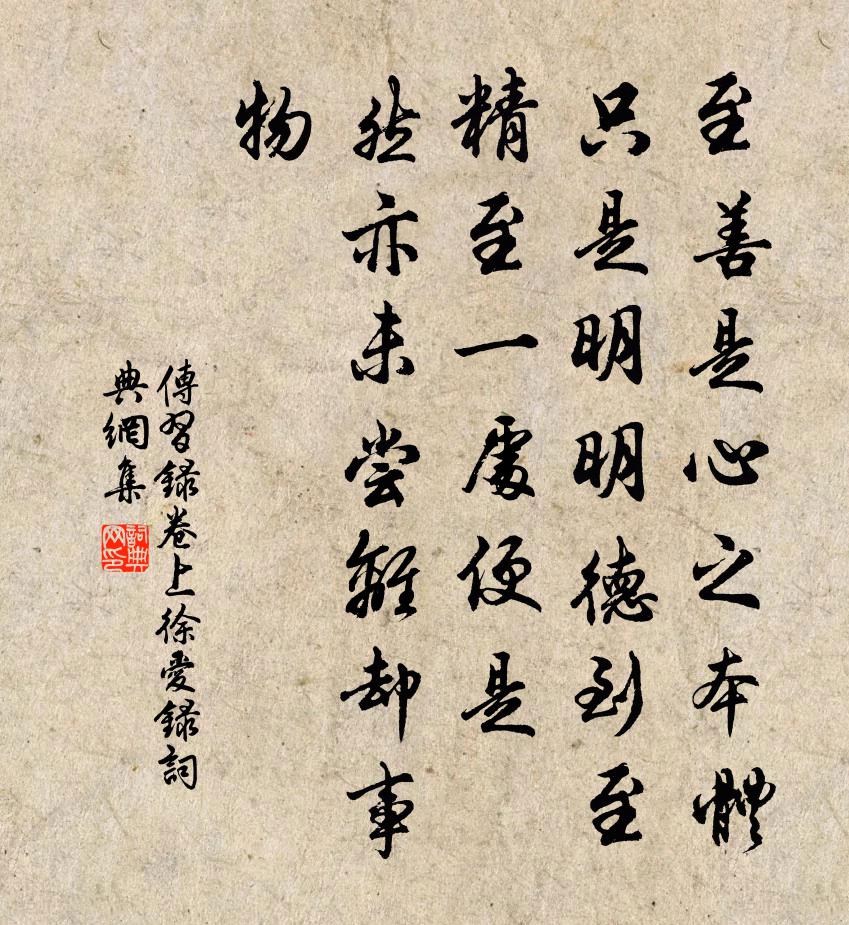 至善是心之本體
只是明明德到至
精至一處便是
然亦未嘗離却事
物
傳習録卷上徐愛録詞
典網集
詞典
网印